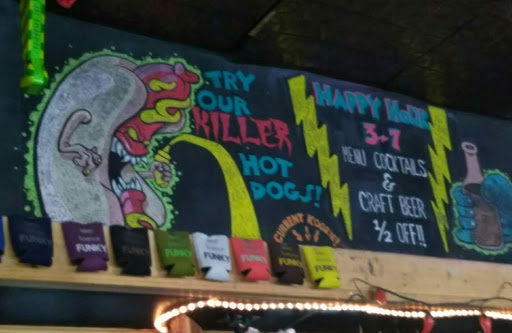 TRY
OUR
KILLER
HOT
DOGS!
HAPPY HOUR
3-7
MENU COCKTAILS
&
CRAFT BEER
1/2 OFF!!
CURRENT KOOZIES
FUNKY
FUNKY
FUNKY
FUNKY
FUNKY
FUNKY
FUNKY
FUNKY